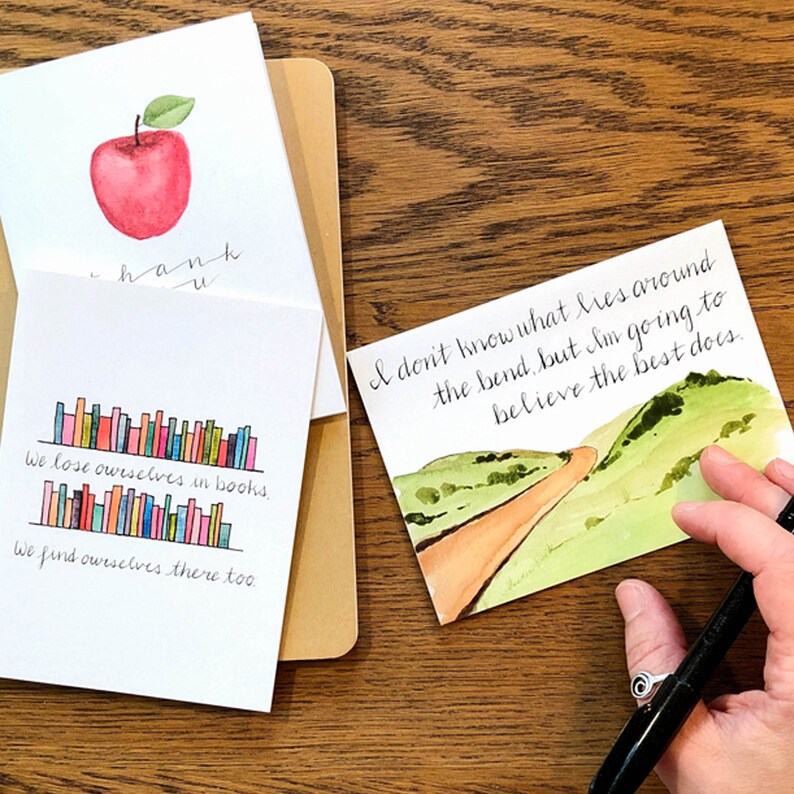 thank
We lose ourselves in books.
We find ourselves there too.
I don't know what lies around
the bend, but I'm going to
believe the best does.